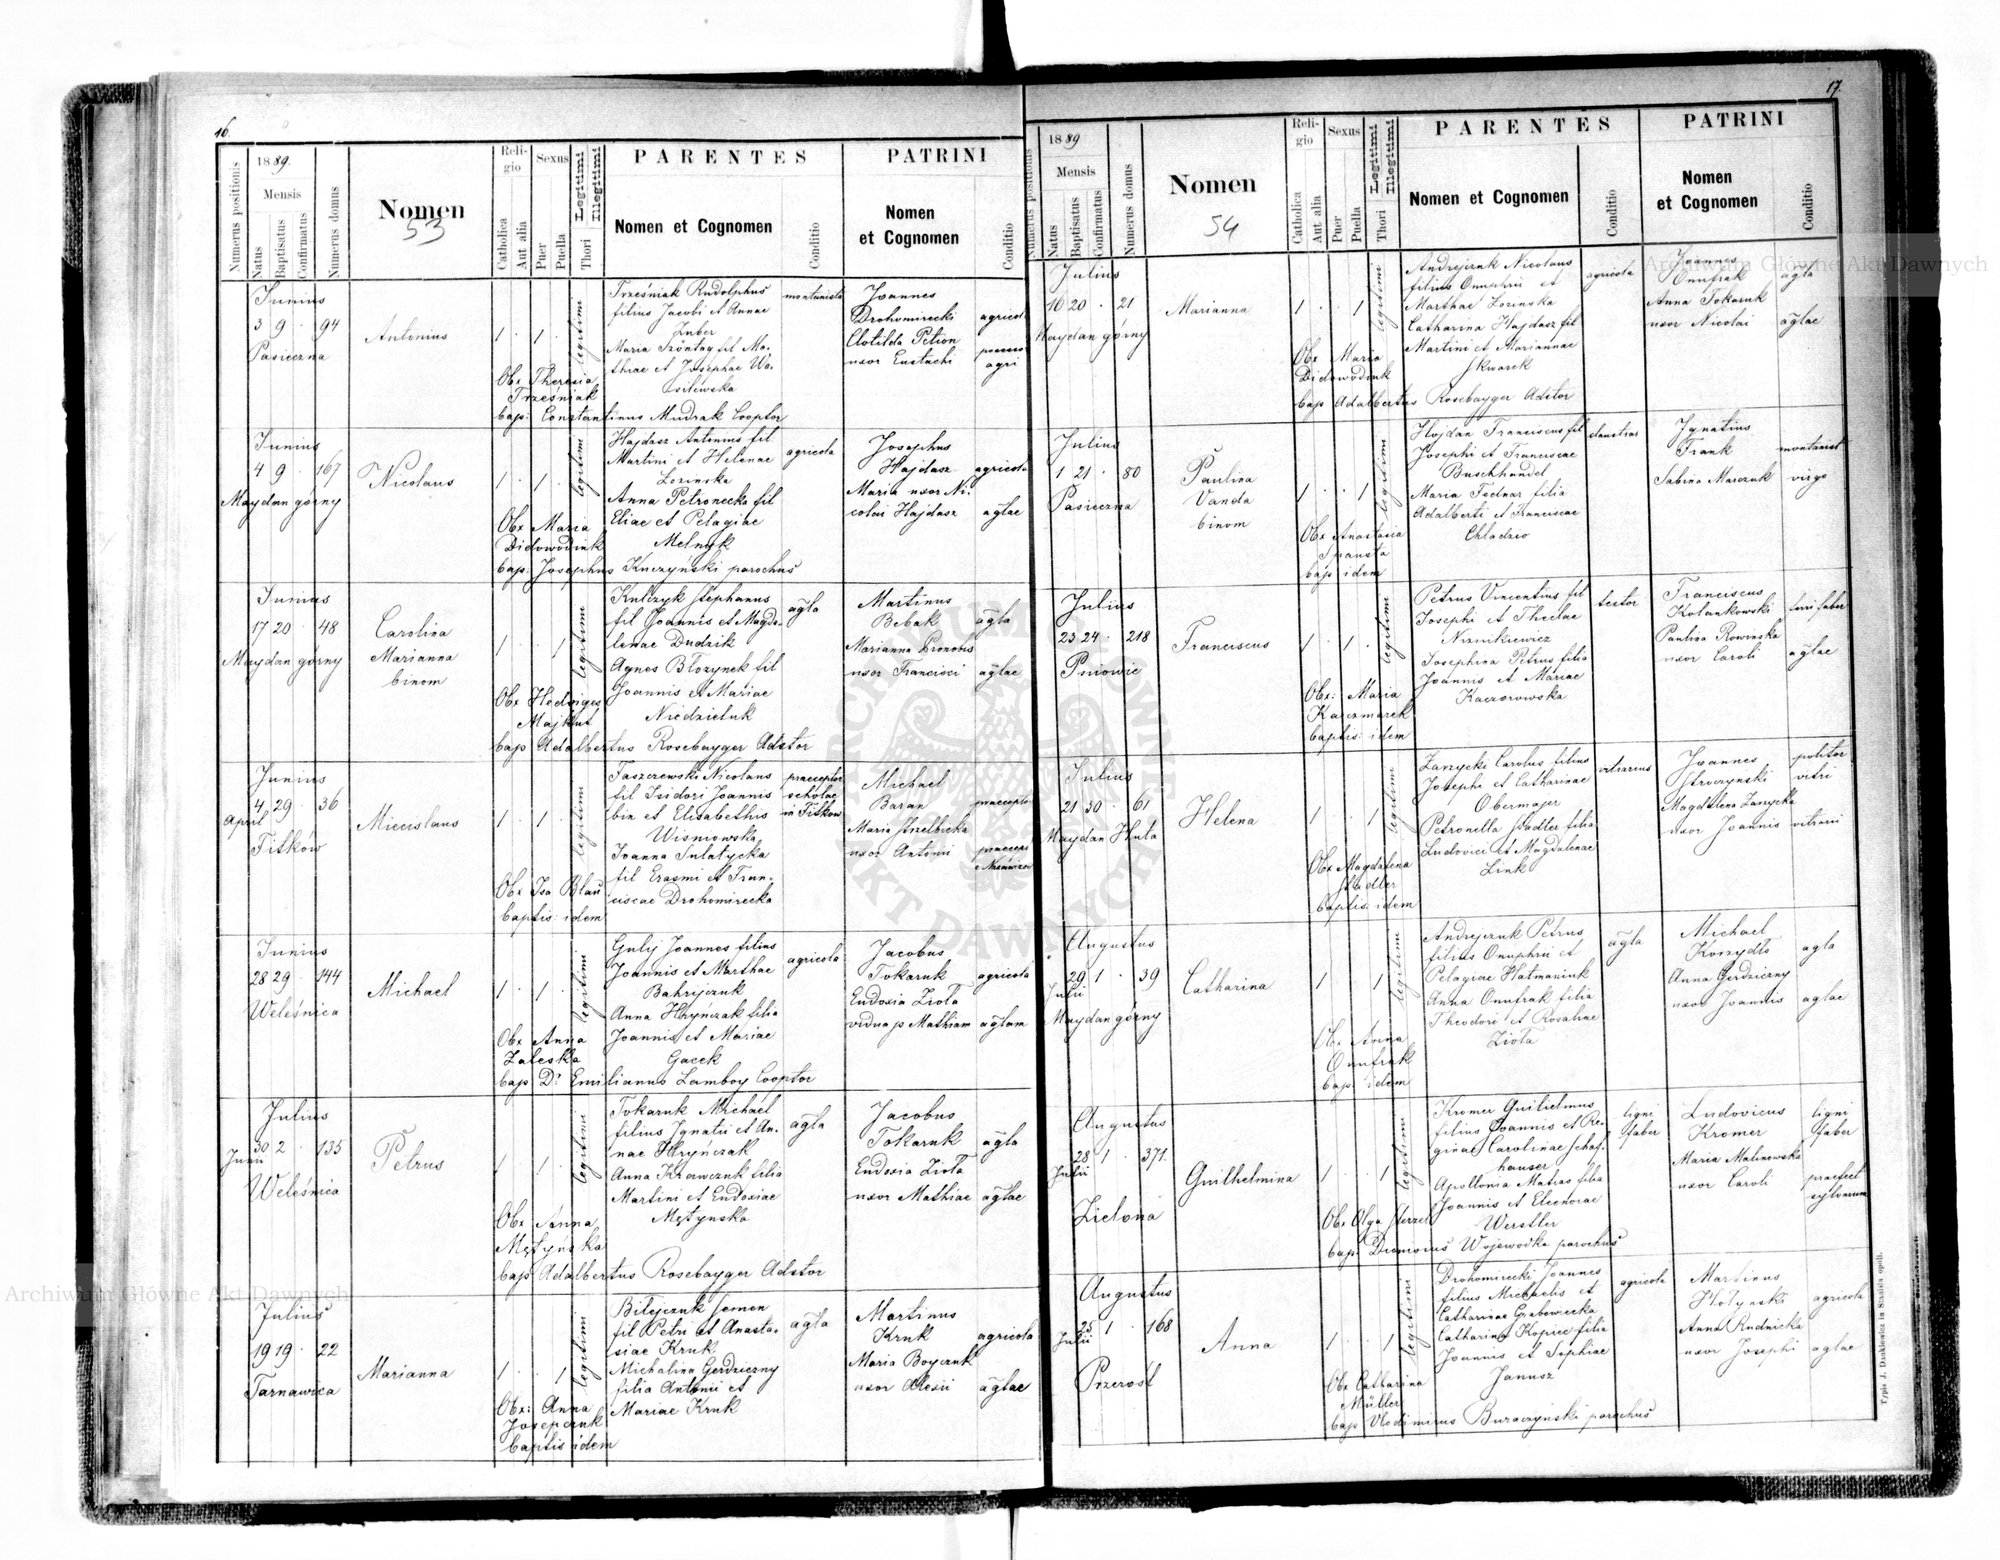 16.
Numerus positionis
1889.
Mensis
Natus
Baptisatus
Confirmatus
Numerus domus
Nomen
53
Religio
Catholica
Aut alia
Sexus
Puer
Puella
Legitimi
Illegitimi
Thori
PARENTES
Nomen et Cognomen
Conditio
PATRINI
Nomen
et Cognomen
Conditio
Junius
3 9 · 94
Pasieczna
Antonius
1 · 1 ·
legitimi
Trześniak Rudolphus
filius Jacobi et Annae
Zuber
Maria Szöntag fil Ma-
thiae et Josephae Wa-
silewska
montanista
Joannes
Drohomirecki
Clotilda Petion
uxor Eustachi
agricola
possess
agri
Obx Theresia
Trześniak
bap: Constantinus Mudrak Cooptor
Junius
4 9 · 167
Maydan górny
Nicolaus
1 · 1 ·
legitimi
Hajdasz Antonius fil
Martini et Helenae
Lozinska
Anna Petronecka fil
Eliae et Pelagiae
Melnyk
agricola
Josephus
Hajdasz
Maria uxor Ni-
colai Hajdasz
agricola
aglae
Obx Maria
Didowodiuk
bap: Josephus Kuczyński parochus
Junius
17 20 · 48
Maydan górny
Carolina
Marianna
binom
1 · · 1
legitimi
Kulczyk Stephanus
fil Joannis et Magda-
lenae Dudzik
Agnes Błozynek fil
Joannis et Mariae
Niedzieluk
agla
Martinus
Bebak
Marianna Pronobis
uxor Francisci
agla
aglae
Obx Hedviges
Majkut
bap Adalbertus Rosebayger Adstor
Junius
4 29 · 36
April
Fitków
Miecislaus
1 · 1 ·
legitimi
Taszczewski Nicolaus
fil Isidori Joannis
bin et Elisabethis
Wisniowska
Joanna Sulatycka
fil Erasmi et Fran-
ciscae Drohomirecka
praeceptor
scholae
in Fitkow
Michael
Baran
Maria Strzelbicka
uxor Antonii
praeceptor
praecept
Obx Isa Blau
baptis: idem
Junius
28 29 · 144
Weleśnica
Michael
1 · 1 ·
legitimi
Gulij Joannes filius
Joannis et Marthae
Bahryczuk
Anna Hrynczak filia
Joannis et Mariae
Gacek
agricola
Jacobus
Tokaruk
Eudoxia Ziota
vidua p Mathiam
agricola
aglam
Obx Anna
Zaleska
bap Dr Emilianus Lamboy Cooptor
Julius
30 2 · 135
Junii
Weleśnica
Petrus
1 · 1 ·
legitimi
Tokaruk Michael
filius Ignatii et An-
nae Hryńczak
Anna Krawczuk filia
Martini et Eudoxiae
Mętynska
agla
Jacobus
Tokaruk
Eudoxia Ziota
uxor Mathiae
agla
aglae
Obx Anna
Mętyńska
bap Adalbertus Rosebayger Adstor
Julius
19 19 · 22
Tarnawica
Marianna
1 · · 1
legitimi
Biłejczuk Semen
fil Petri et Anasta-
siae Kruk
Michalina Gerdziczny
filia Antonii et
Mariae Kruk
agla
Martinus
Kruk
Maria Boyczuk
uxor Alexii
agricola
aglae
Obx: Anna
Josepczuk
baptis idem
17.
Numerus positionis
1889
Mensis
Natus
Baptisatus
Confirmatus
Numerus domus
Nomen
54
Religio
Catholica
Aut alia
Sexus
Puer
Puella
Legitimi
Illegitimi
Thori
PARENTES
Nomen et Cognomen
Conditio
PATRINI
Nomen
et Cognomen
Conditio
Julius
10 20 · 21
Maydan górny
Marianna
1 · · 1
legitimi
Andrejczuk Nicolaus
filius Onuphrii et
Marthae Lozinska
Catharina Hajdasz fil
Martini et Mariannae
Skwarek
agricola
Joannes
Onufrak
Anna Tokaruk
uxor Nicolai
agla
aglae
Obx Maria
Didowodiuk
bap Adalbertus Rosebayger Adstor
Julius
1 21 · 80
Pasieczna
Paulina
Vanda
binom
1 · · 1
legitimi
Hojdan Franciscus fil
Josephi et Franciscae
Buschhundel
Maria Fednar filia
Adalberti et Franciscae
Chladzio
Ignatius
Frank
Sabina Marczuk
montanist
virgo
Obx Anastasia
Spausta
bap idem
Julius
23 24 · 218
Pniowie
Franciscus
1 · 1 ·
legitimi
Petrus Vincentius fil
Josephi et Theclae
Niznikiewicz
Josephina Petrus filia
Joannis et Mariae
Kaczorowska
textor
Franciscus
Kolankowski
Paulina Rowinska
uxor Caroli
faber
aglae
Obx: Maria
Karczmarek
baptis: idem
Julius
21 30 · 61
Maydan Huta
Helena
1 · · 1
legitimi
Zarzycki Carolus filius
Josephi et Catharinae
Obermajer
Petronella Stadler filia
Ludovici et Magdalenae
Link
vitriarius
Joannes
Stroczynski
Magdalena Zarzycka
uxor Joannis
politor
vitri
vitrarii
Obx Magdalena
Stadler
baptis: idem
Augustus
29 1 · 39
Julii
Maydan górny
Catharina
1 · · 1
legitimi
Andrejczuk Petrus
filius Onuphrii et
Pelagiae Hatmaniuk
Anna Onufrak filia
Theodori et Rosaliae
Ziota
agla
Michael
Korzydło
Anna Gerdziczny
uxor Joannis
agla
aglae
Obx Anna
Onufrak
bap: idem
Augustus
28 1 · 371.
Julii
Zielona
Guilhelmina
1 · · 1
legitimi
Kromer Guilielmus
filius Joannis et Re-
ginae Carolinae Schaf-
hauser
Apollonia Matras filia
Joannis et Eleonorae
Werstler
ligni
faber
Ludovicus
Kromer
Maria Malinowska
uxor Caroli
ligni
faber
praefect
sylvarum
Obx Olga Herzel
bap: Dionisius Wojewodka parochus
Augustus
25 1 · 168
Julii
Przerosl
Anna
1 · · 1
legitimi
Drohomirecki Joannes
filius Michaelis et
Catharinae Grabowiecka
Catharina Kopiec filia
Joannis et Sophiae
Janusz
agricola
Martinus
Hołynski
Anna Rudnicka
uxor Josephi
agricola
aglae
Obx Catharina
Müller
bap Vlodimirus Buraczyński parochus
Typis J. Dankiewicz in Stanislaopoli.
Archiwum Główne Akt Dawnych
Archiwum Główne Akt Dawnych
ARCHIWUM GŁÓWNE AKT DAWNYCH